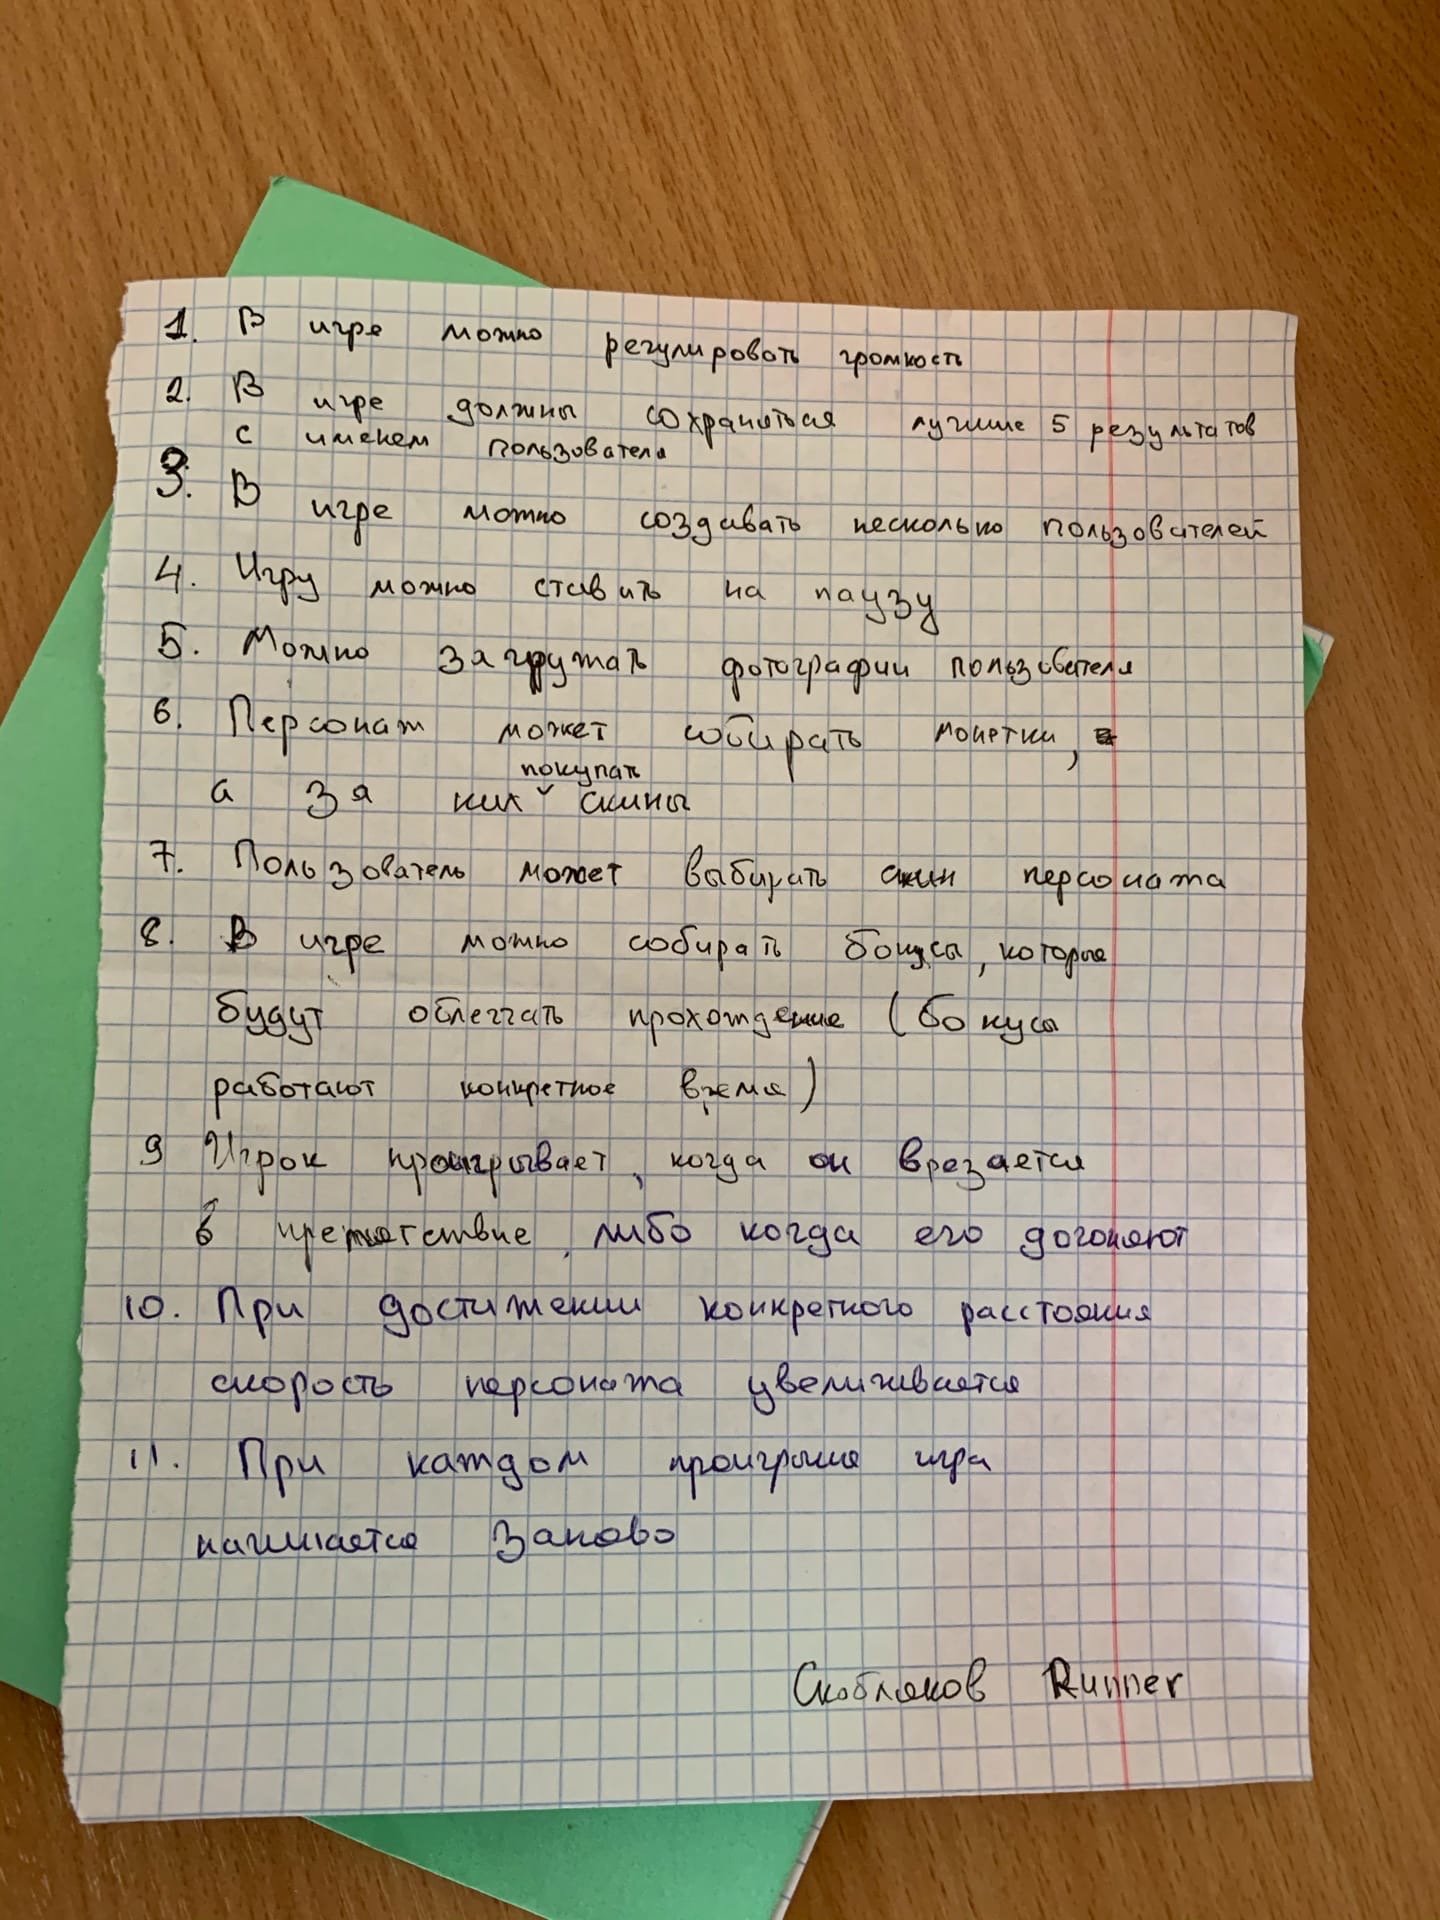 1. В игре можно регулировать громкость
2. В игре должны сохраняться лучшие 5 результатов
с именем пользователя
3. В игре можно создавать несколько пользователей
4. Игру можно ставить на паузу
5. Можно загружать фотографии пользователя
6. Персонаж может собирать монетки,
покупать
а за них ˅ скины
7. Пользователь может выбирать скин персонажа
8. В игре можно собирать бонусы, которые
будут облегчать прохождение (бонусы
работают конкретное время)
9 Игрок проигрывает, когда он врезается
в препятствие, либо когда его догоняют
10. При достижении конкретного расстояния
скорость персонажа увеличивается
11. При каждом проигрыше игра
начинается заново
Скобляков Runner